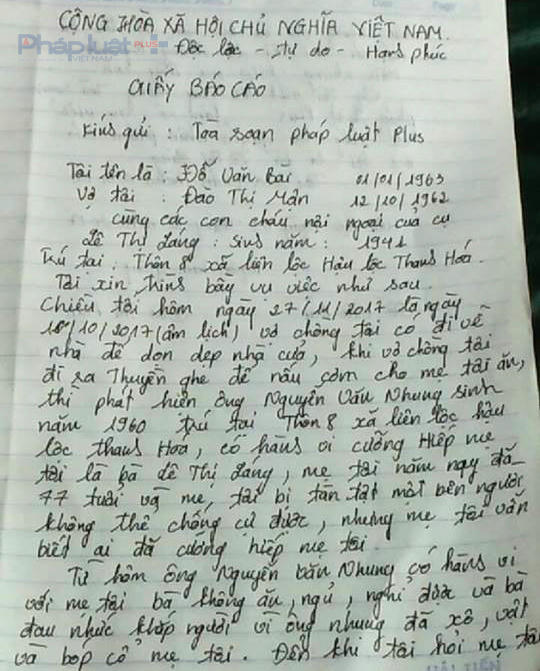 CỘNG HÒA XÃ HỘI CHỦ NGHĨA VIỆT NAM.
Pháp luật PLUS VIỆT NAM
Độc lập - Tự do - Hạnh phúc
GIẤY BÁO CÁO
Kính gửi : Toà soạn pháp luật Plus
Tôi tên là : Đỗ Văn Bài 01/01/1963
Vợ tôi : Đào Thị Mân 12/10/1962
cùng các con cháu nội ngoại của cụ
Lê Thị Láng : sinh năm : 1941
Trú tại : Thôn 8 xã liên lộc Hậu lộc Thanh Hoá.
Tôi xin trình bày vụ việc như sau.
Chiều tối hôm ngày 27/11/2017 là ngày
10/10/2017 (âm lịch) vợ chồng tôi có đi về
nhà để dọn dẹp nhà cửa, khi vợ chồng tôi
đi ra Thuyền ghe để nấu cơm cho mẹ tôi ăn,
thì phát hiện ông Nguyễn Văn Nhung sinh
năm 1960 trú tại Thôn 8 xã liên lộc hậu
lộc thanh Hoá, có hành vi cưỡng Hiếp mẹ
tôi là bà Lê Thị Láng, mẹ tôi năm nay đã
77 tuổi và mẹ tôi bị tàn tật một bên người
không thể chống cự được, nhưng mẹ tôi vẫn
biết ai đã cưỡng hiếp mẹ tôi.
Từ hôm ông Nguyễn Văn Nhung có hành vi
với mẹ tôi bà không ăn, ngủ, nghỉ được và bà
đau nhức khắp người vì ông nhung đã xô, vật
và bóp cổ mẹ tôi. Đến khi tôi hỏi mẹ tôi